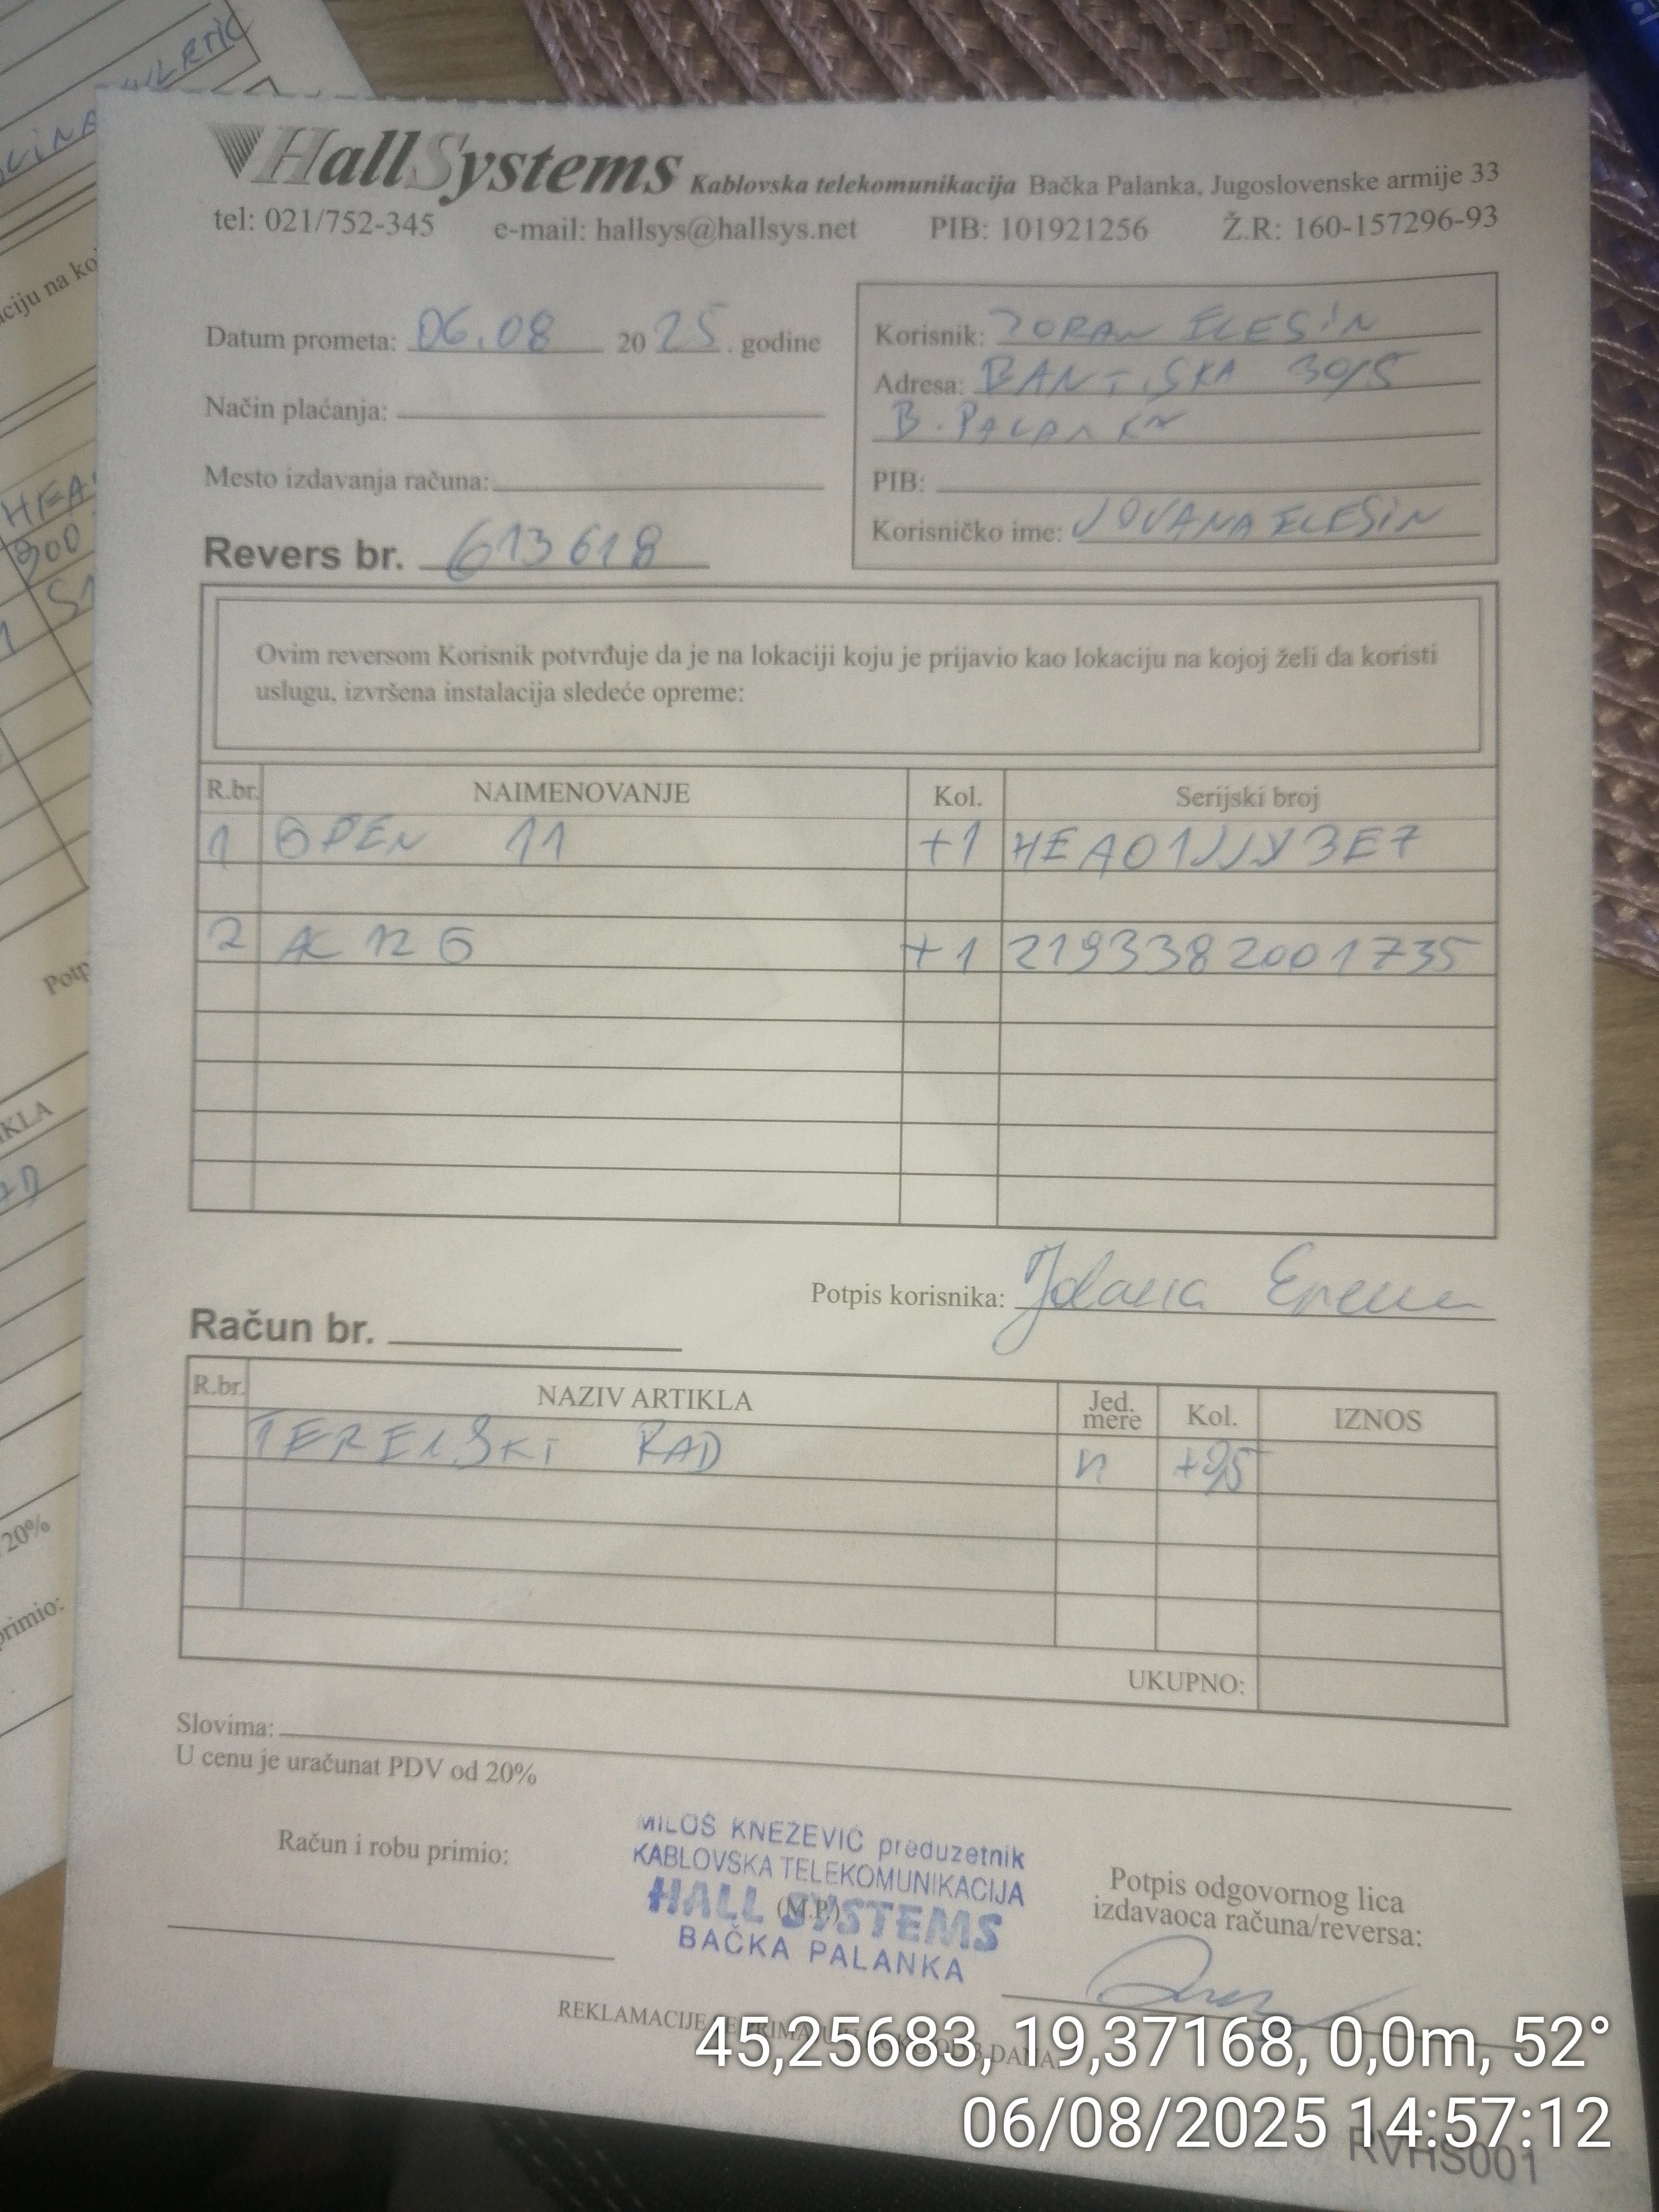 HallSystems Kablovska telekomunikacija Bačka Palanka, Jugoslovenske armije 33
tel: 021/752-345 e-mail: hallsys@hallsys.net PIB: 101921256 Ž.R: 160-157296-93
Datum prometa: 06.08 2025. godine
Način plaćanja:
Mesto izdavanja računa:
Revers br. 613618
Korisnik: ZORAN ELESIN
Adresa: 30/5
B. PALANKA
PIB:
Korisničko ime: JOVANAELESIN
Ovim reversom Korisnik potvrđuje da je na lokaciji koju je prijavio kao lokaciju na kojoj želi da koristi
uslugu, izvršena instalacija sledeće opreme:
R.br. NAIMENOVANJE Kol. Serijski broj
1 OPEN 11 +1
2 +1 2193382001735
Potpis korisnika:
Račun br.
R.br. NAZIV ARTIKLA Jed. mere Kol. IZNOS
TERENSKI RAD
UKUPNO:
Slovima:
U cenu je uračunat PDV od 20%
Račun i robu primio:
MILOŠ KNEŽEVIĆ preduzetnik
KABLOVSKA TELEKOMUNIKACIJA
HALL SYSTEMS
(M.P.)
BAČKA PALANKA
Potpis odgovornog lica
izdavaoca računa/reversa:
REKLAMACIJE DANA
45,25683, 19,37168, 0,0m, 52°
06/08/2025 14:57:12
RVHS001